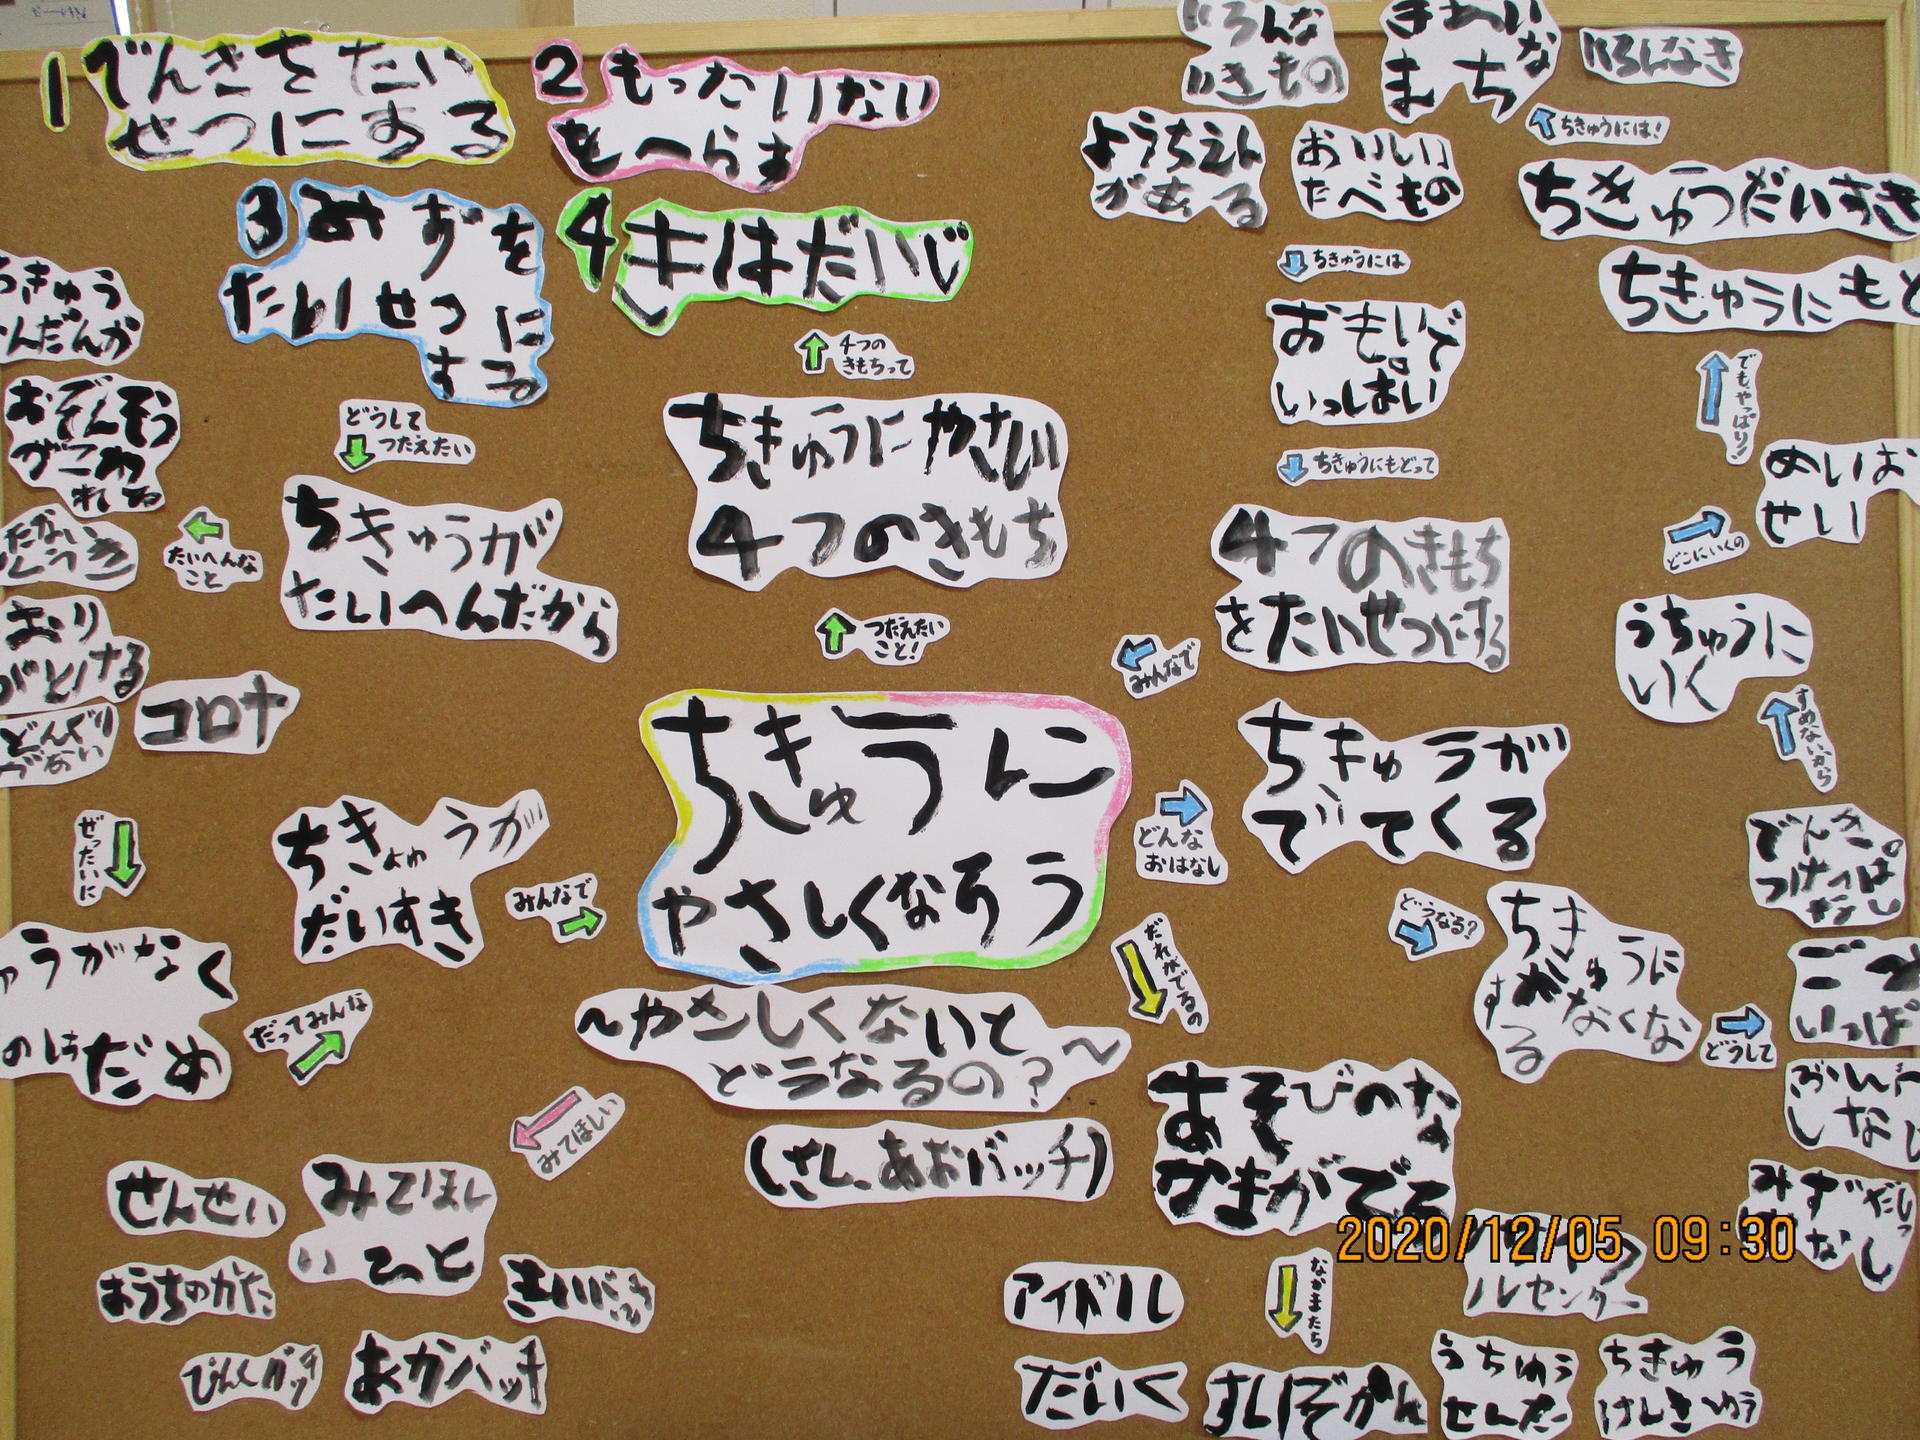 1
でんきをたい
せつにする
2
もったいない
をへらす
3
みずを
たいせつに
する
4
きはだいじ
いろんな
いきもの
きれいな
まち
いろんなき
ちきゅうには!
ようちえん
がある
おいしい
たべもの
ちきゅうだいすき
ちきゅうには
ちきゅうにもど
おもいで
いっぱい
4つの
きもちって
でも、やっぱり!
ちきゅうにやさしい
4つのきもち
どうして
つたえたい
ちきゅうにもどって
ちきゅうが
たいへんだから
たいへんな
こと
おぞんそう
がこわ
れてる
4つのきもち
をたいせつにする
めいお
せい
どこにいくの
つたえたい
こと!
みんなで
うちゅうに
いく
すめないから
コロナ
ちきゅうに
やさしくなろう
どんな
おはなし
ちきゅうが
でてくる
ぜったいに
ちきゅうが
だいすき
みんなで
でんき。
つけっぱ
なし
うがなく
のはだめ
だってみんな
だれがでるの
どうなる?
どうして
~やさしくないと
どうなるの?~
(さん、あおバッチ)
みてほしい
あそびのな
かまがでる
せんせい
みてほし
いひと
おうちのかた
きいばっち
ぴんくバッチ
あかバッチ
みずだしっ
ぱなし
2020/12/05 09:30
アイドル
なかまたち
だいく
すいぞかん
うちゅう
せんたー
ちきゅう
けんきゅう